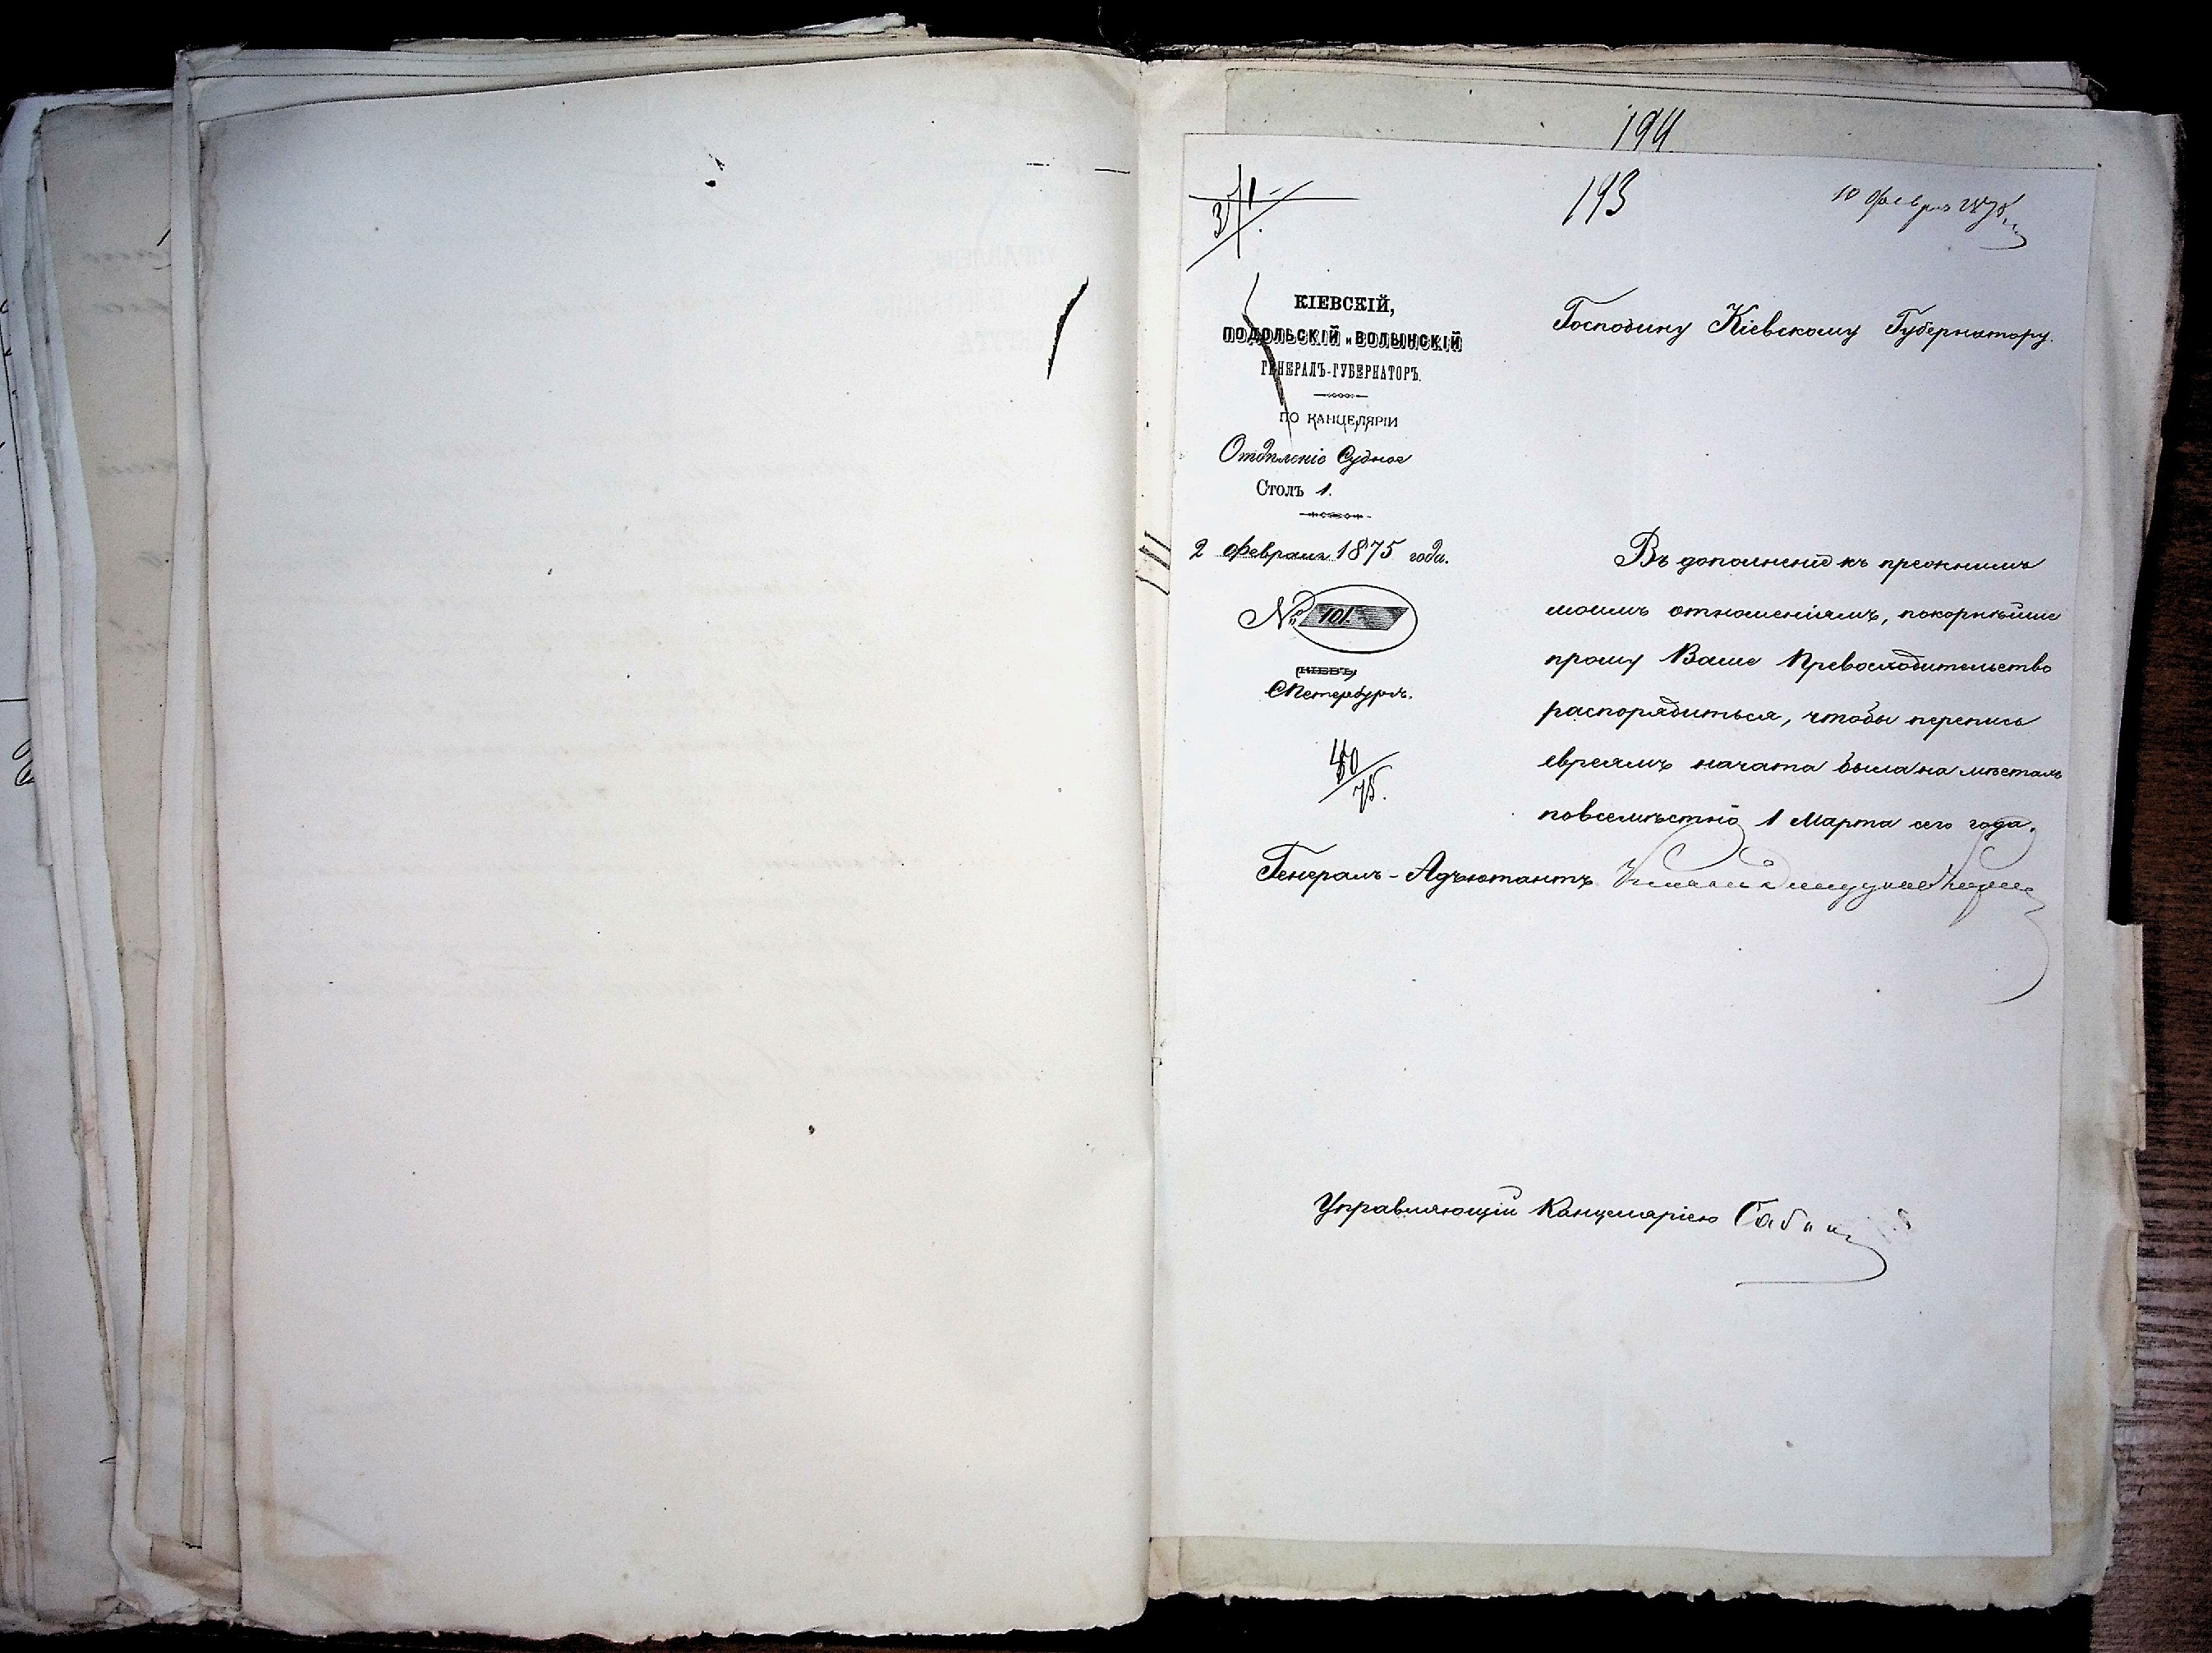 194
193
10 февр. 1875
КІЕВСКІЙ,
ПОДОЛЬСКІЙ и ВОЛЫНСКІЙ
ГЕНЕРАЛЪ-ГУБЕРНАТОРЪ.
ПО КАНЦЕЛЯРІИ
Отдѣленіе Судное
Столъ 1.
2 февраля 1875 года.
№ 101.
КІЕВЪ.
СПетербургъ.
40/75.
Господину Кіевскому Губернатору.
Въ дополненіе къ прежнимъ
моимъ отношеніямъ, покорнѣйше
прошу Ваше Превосходительство
распорядиться, чтобы перепись
евреямъ начата была на мѣстахъ
повсемѣстно 1 Марта сего года.
Генералъ-Адъютантъ
Управляющій Канцеляріею